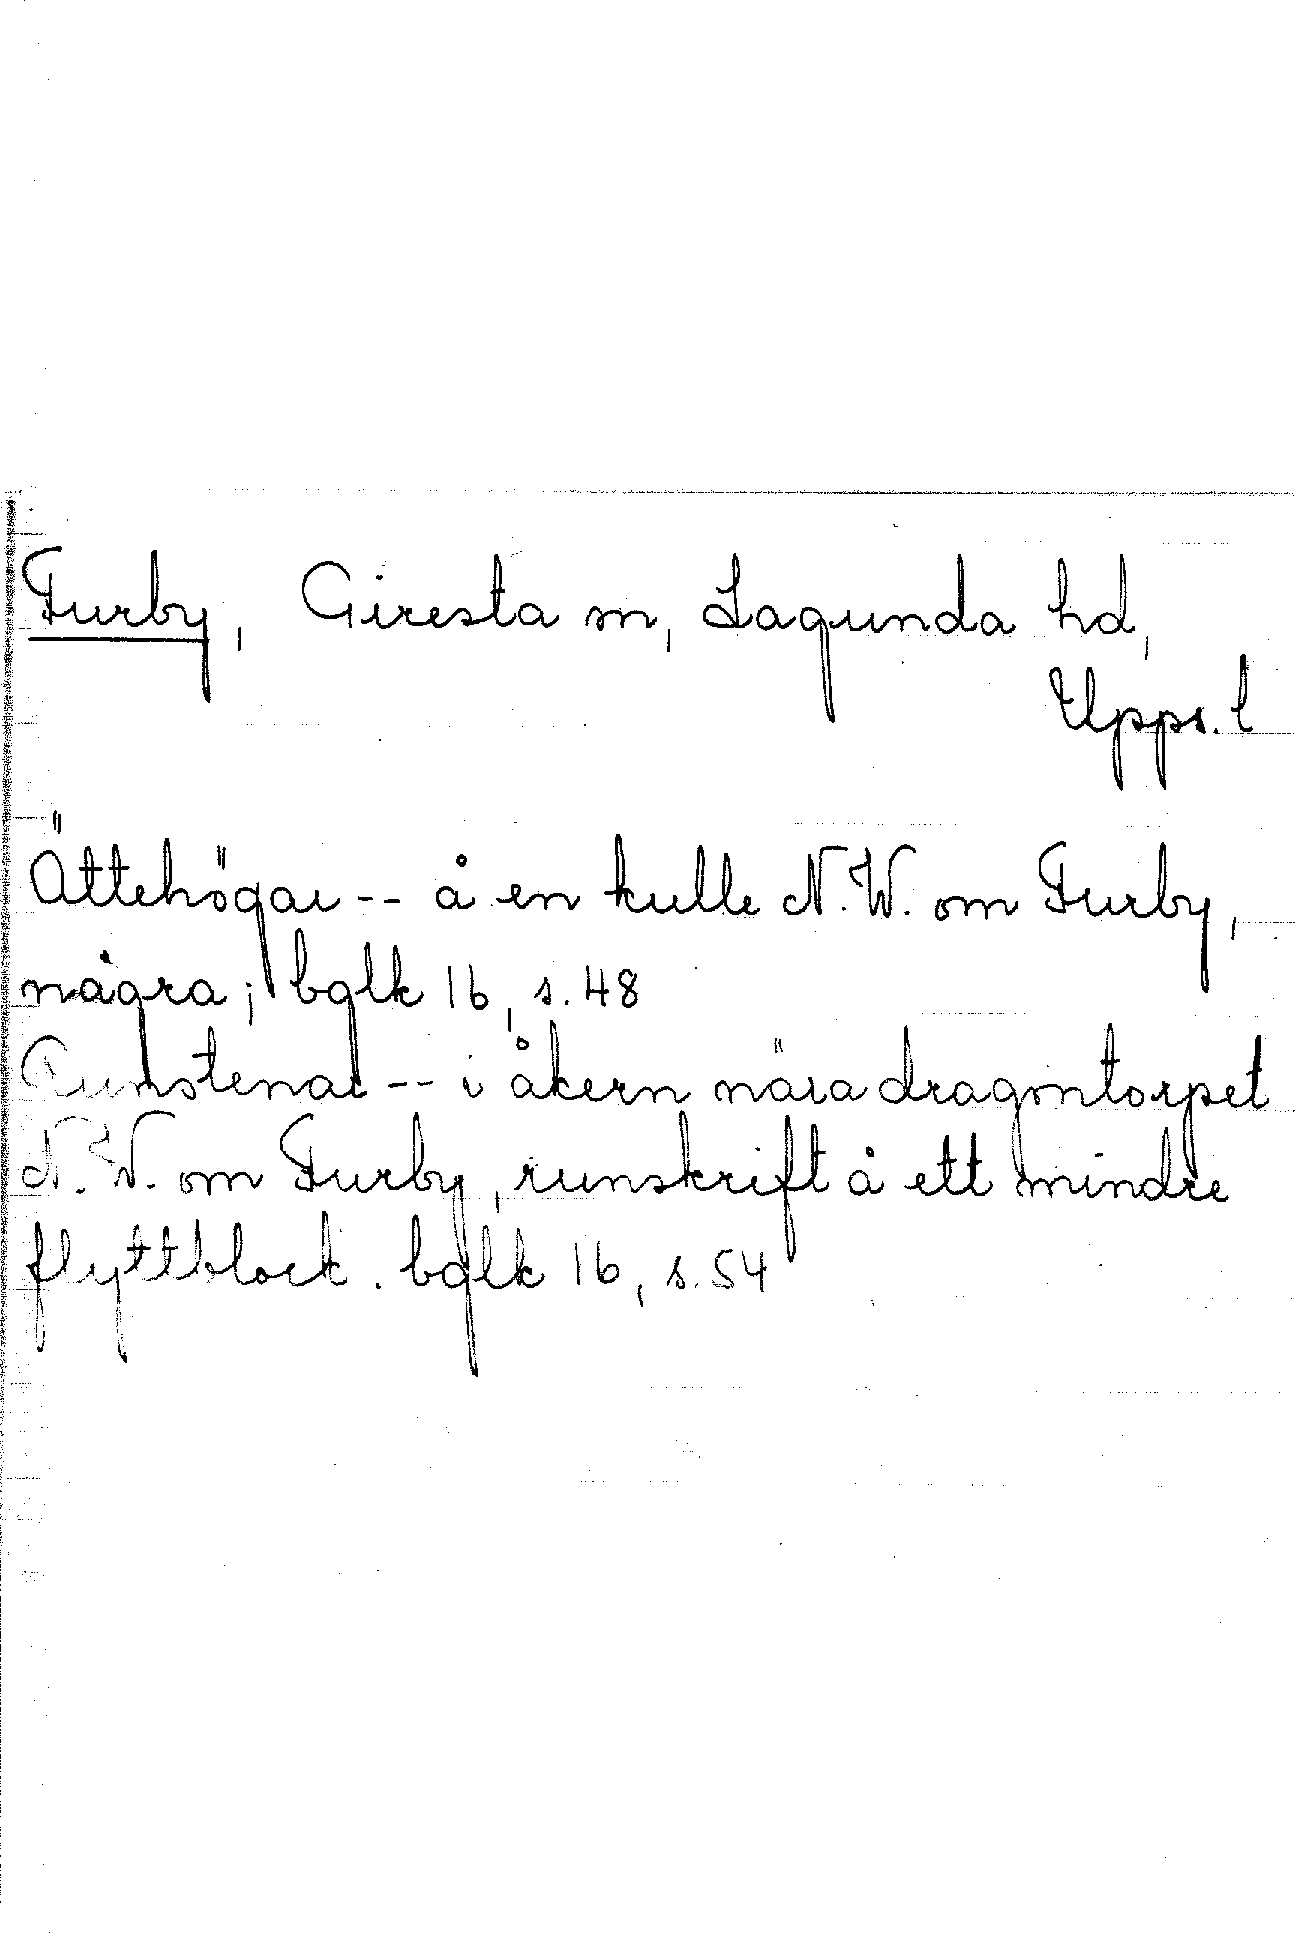 Furby, Giresta sn, Lagunda hd,
Upps. l
Ättehögar -- å en kulle N.W. om Furby,
några; bglk 16, s. 48
Runstenar -- i åkern nära dragontorpet
N.W. om Furby, runskrift å ett mindre
flyttblock. bglk 16, s. 54